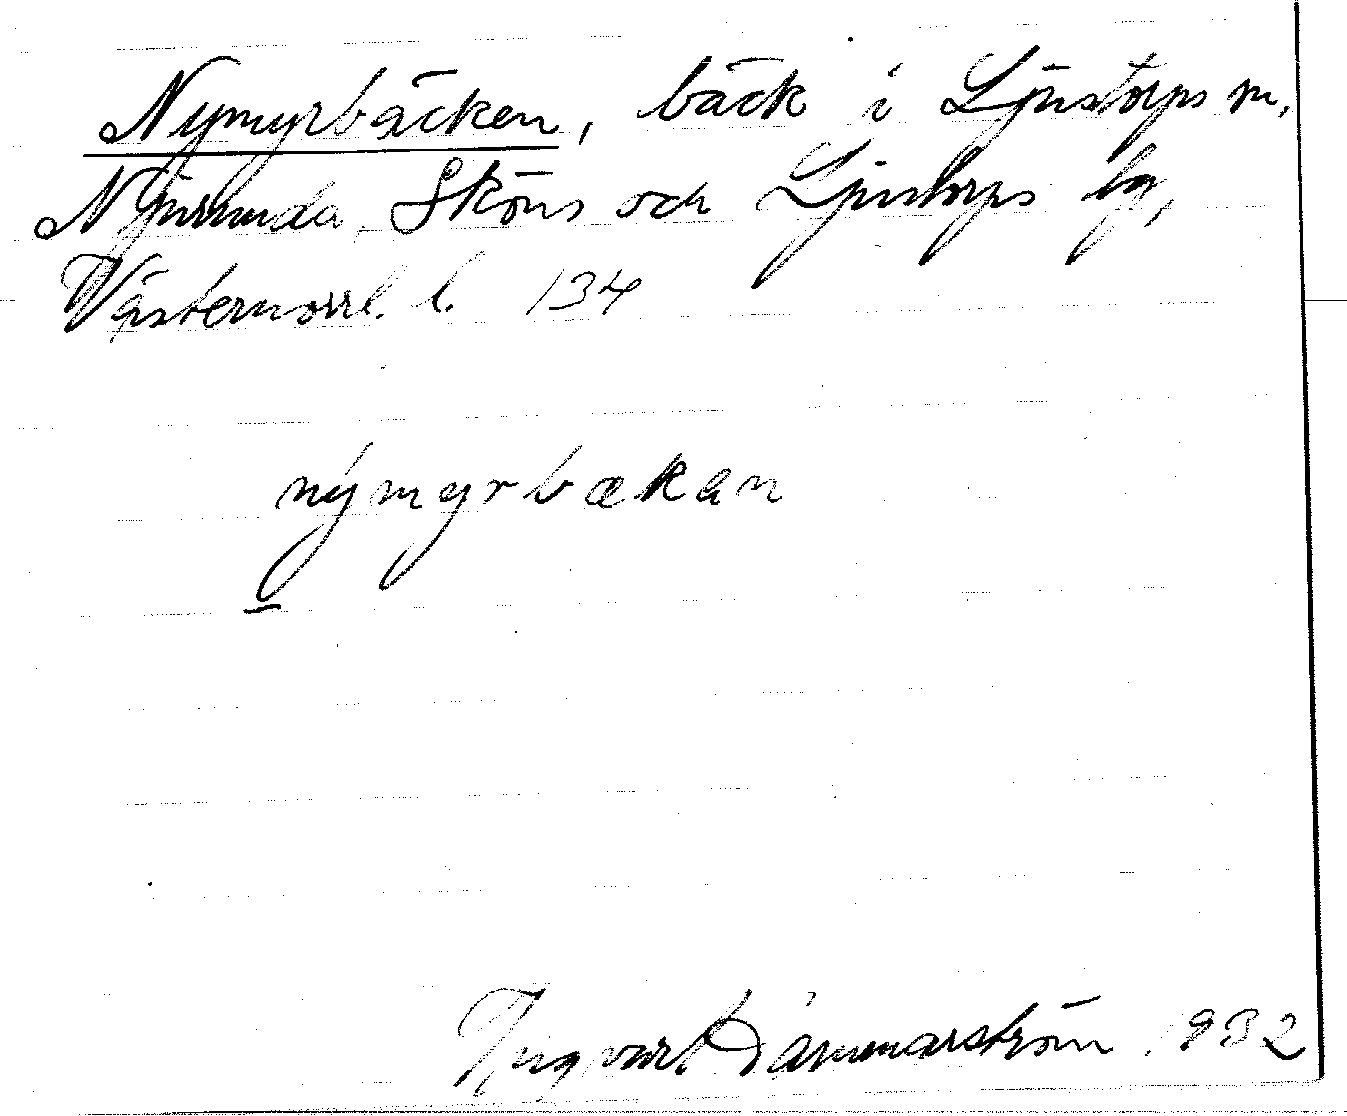 Nymyrbäcken, bäck i Ljustorps sn,
Njurunda, Sköns och Ljustorps tg,
Västernorrl. l. 134
nýmyrbækan
Ingvart Dammarström 1932